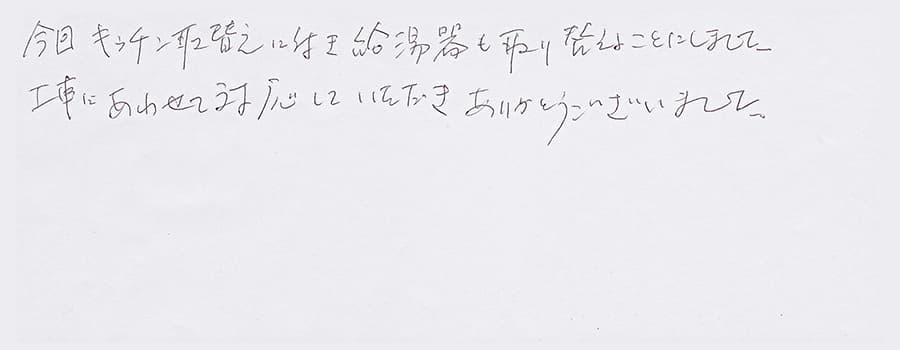 今回 キッチン取替えに付き 給湯器も取り替えることにしました。
工事にあわせて対応していただきありがとうございました。